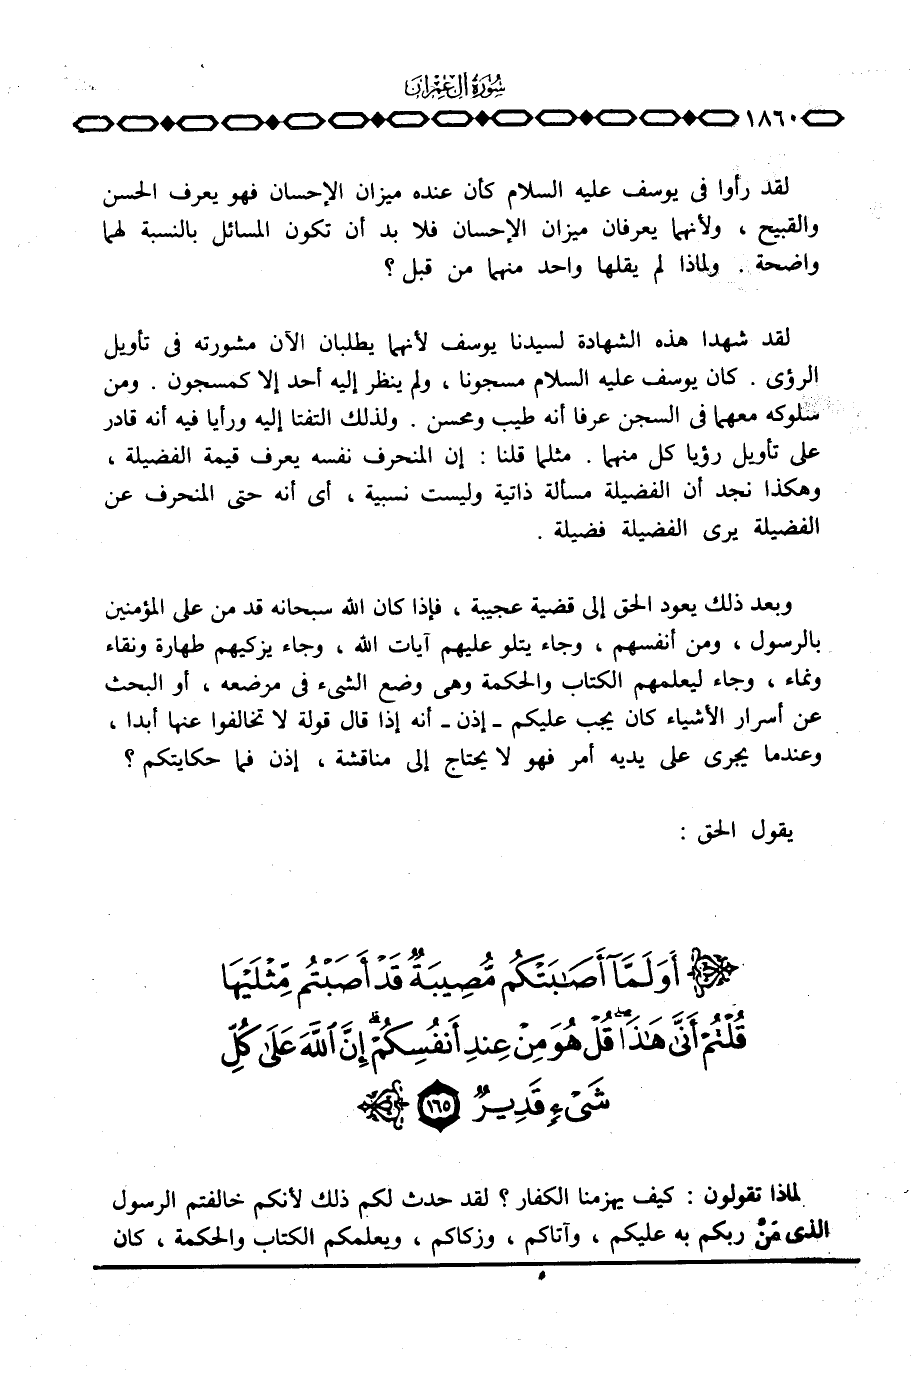 سُورَةُ آلِ عِمْرَانَ
١٨٦٠
لقد رأوا فى يوسف عليه السلام كأن عنده ميزان الإحسان فهو يعرف الحسن
والقبيح ، ولأنهما يعرفان ميزان الإحسان فلا بد أن تكون المسائل بالنسبة لهما
واضحة . ولماذا لم يقلها واحد منهما من قبل ؟
لقد شهدا هذه الشهادة لسيدنا يوسف لأنهما يطلبان الآن مشورته فى تأويل
الرؤى . كان يوسف عليه السلام مسجونا ، ولم ينظر إليه أحد إلا كمسجون . ومن
سلوكه معهما فى السجن عرفا أنه طيب ومحسن . ولذلك التفتا إليه ورأيا فيه أنه قادر
على تأويل رؤيا كل منهما . مثلما قلنا : إن المنحرف نفسه يعرف قيمة الفضيلة ،
وهكذا نجد أن الفضيلة مسألة ذاتية وليست نسبية ، أى أنه حتى المنحرف عن
الفضيلة يرى الفضيلة فضيلة .
وبعد ذلك يعود الحق إلى قضية عجيبة ، فإذا كان الله سبحانه قد من على المؤمنين
بالرسول ، ومن أنفسهم ، وجاء يتلو عليهم آيات الله ، وجاء يزكيهم طهارة ونقاء
ونماء ، وجاء ليعلمهم الكتاب والحكمة وهى وضع الشىء فى مرضعه ، أو البحث
عن أسرار الأشياء كان يجب عليكم ـ إذن ـ أنه إذا قال قولة لا تخالفوا عنها أبدا ،
وعندما يجرى على يديه أمر فهو لا يحتاج إلى مناقشة ، إذن فما حكايتكم ؟
يقول الحق :
﴿ أَوَلَمَّآ أَصَٰبَتْكُم مُّصِيبَةٌ قَدْ أَصَبْتُم مِّثْلَيْهَا
قُلْتُمْ أَنَّىٰ هَٰذَا ۖ قُلْ هُوَ مِنْ عِندِ أَنفُسِكُمْ ۗ إِنَّ ٱللَّهَ عَلَىٰ كُلِّ
شَىْءٍ قَدِيرٌ ١٦٥ ﴾
لماذا تقولون : كيف يهزمنا الكفار ؟ لقد حدث لكم ذلك لأنكم خالفتم الرسول
الذى مَنَّ ربكم به عليكم ، وآتاكم ، وزكاكم ، ويعلمكم الكتاب والحكمة ، كان